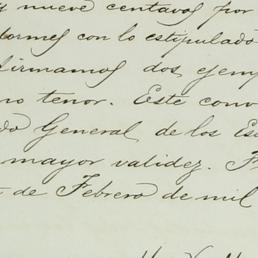 y nueve centavos por
formes con lo estipulado
firmamos dos ejemp
mo tenor. Este conv
do General de los Es
mayor validez. F
de Febrero de mil